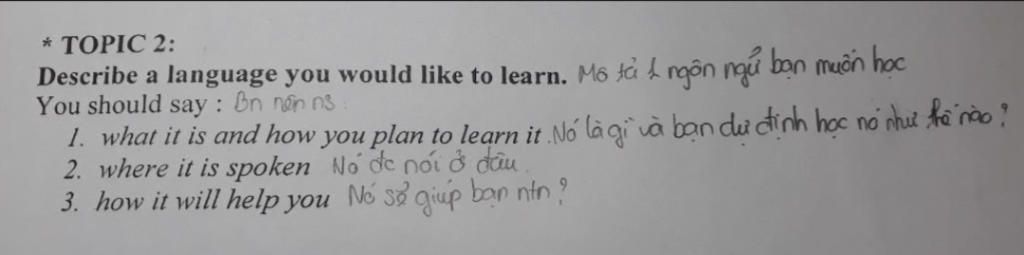 * TOPIC 2:
Describe a language you would like to learn. Mô tả 1 ngôn ngữ bạn muốn học
You should say : Bn nên ns :
1. what it is and how you plan to learn it. Nó là gì và bạn dự định học nó như thế nào?
2. where it is spoken Nó đc nói ở đâu
3. how it will help you Nó sẽ giúp bạn ntn?